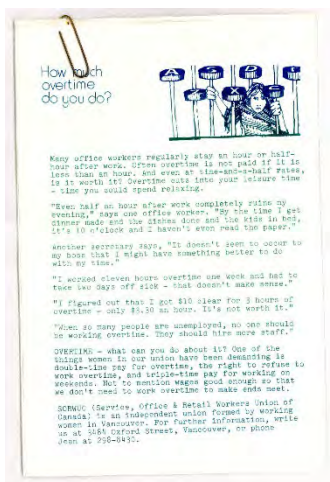 How much
overtime
do you do?
A S D F
X C
Many office workers regularly stay an hour or half-
hour after work. Often overtime is not paid if it is
less than an hour. And even at time-and-a-half rates,
is it worth it? Overtime cuts into your leisure time
- time you could spend relaxing.
"Even half an hour after work completely ruins my
evening," says one office worker. "By the time I get
dinner made and the dishes done and the kids in bed,
it's 10 o'clock and I haven't even read the paper."
Another secretary says, "It doesn't seem to occur to
my boss that I might have something better to do
with my time."
"I worked eleven hours overtime one week and had to
take two days off sick - that doesn't make sense."
"I figured out that I got $10 clear for 3 hours of
overtime - only $3.30 an hour. It's not worth it."
"When so many people are unemployed, no one should
be working overtime. They should hire more staff."
OVERTIME - what can you do about it? One of the
things women in our union have been demanding is
double-time pay for overtime, the right to refuse to
work overtime, and triple-time pay for working on
weekends. Not to mention wages good enough so that
we don't need to work overtime to make ends meet.
SORWUC (Service, Office & Retail Workers Union of
Canada) is an independent union formed by working
women in Vancouver. For further information, write
us at Oxford Street, Vancouver, or phone
Jean at 298-8430.